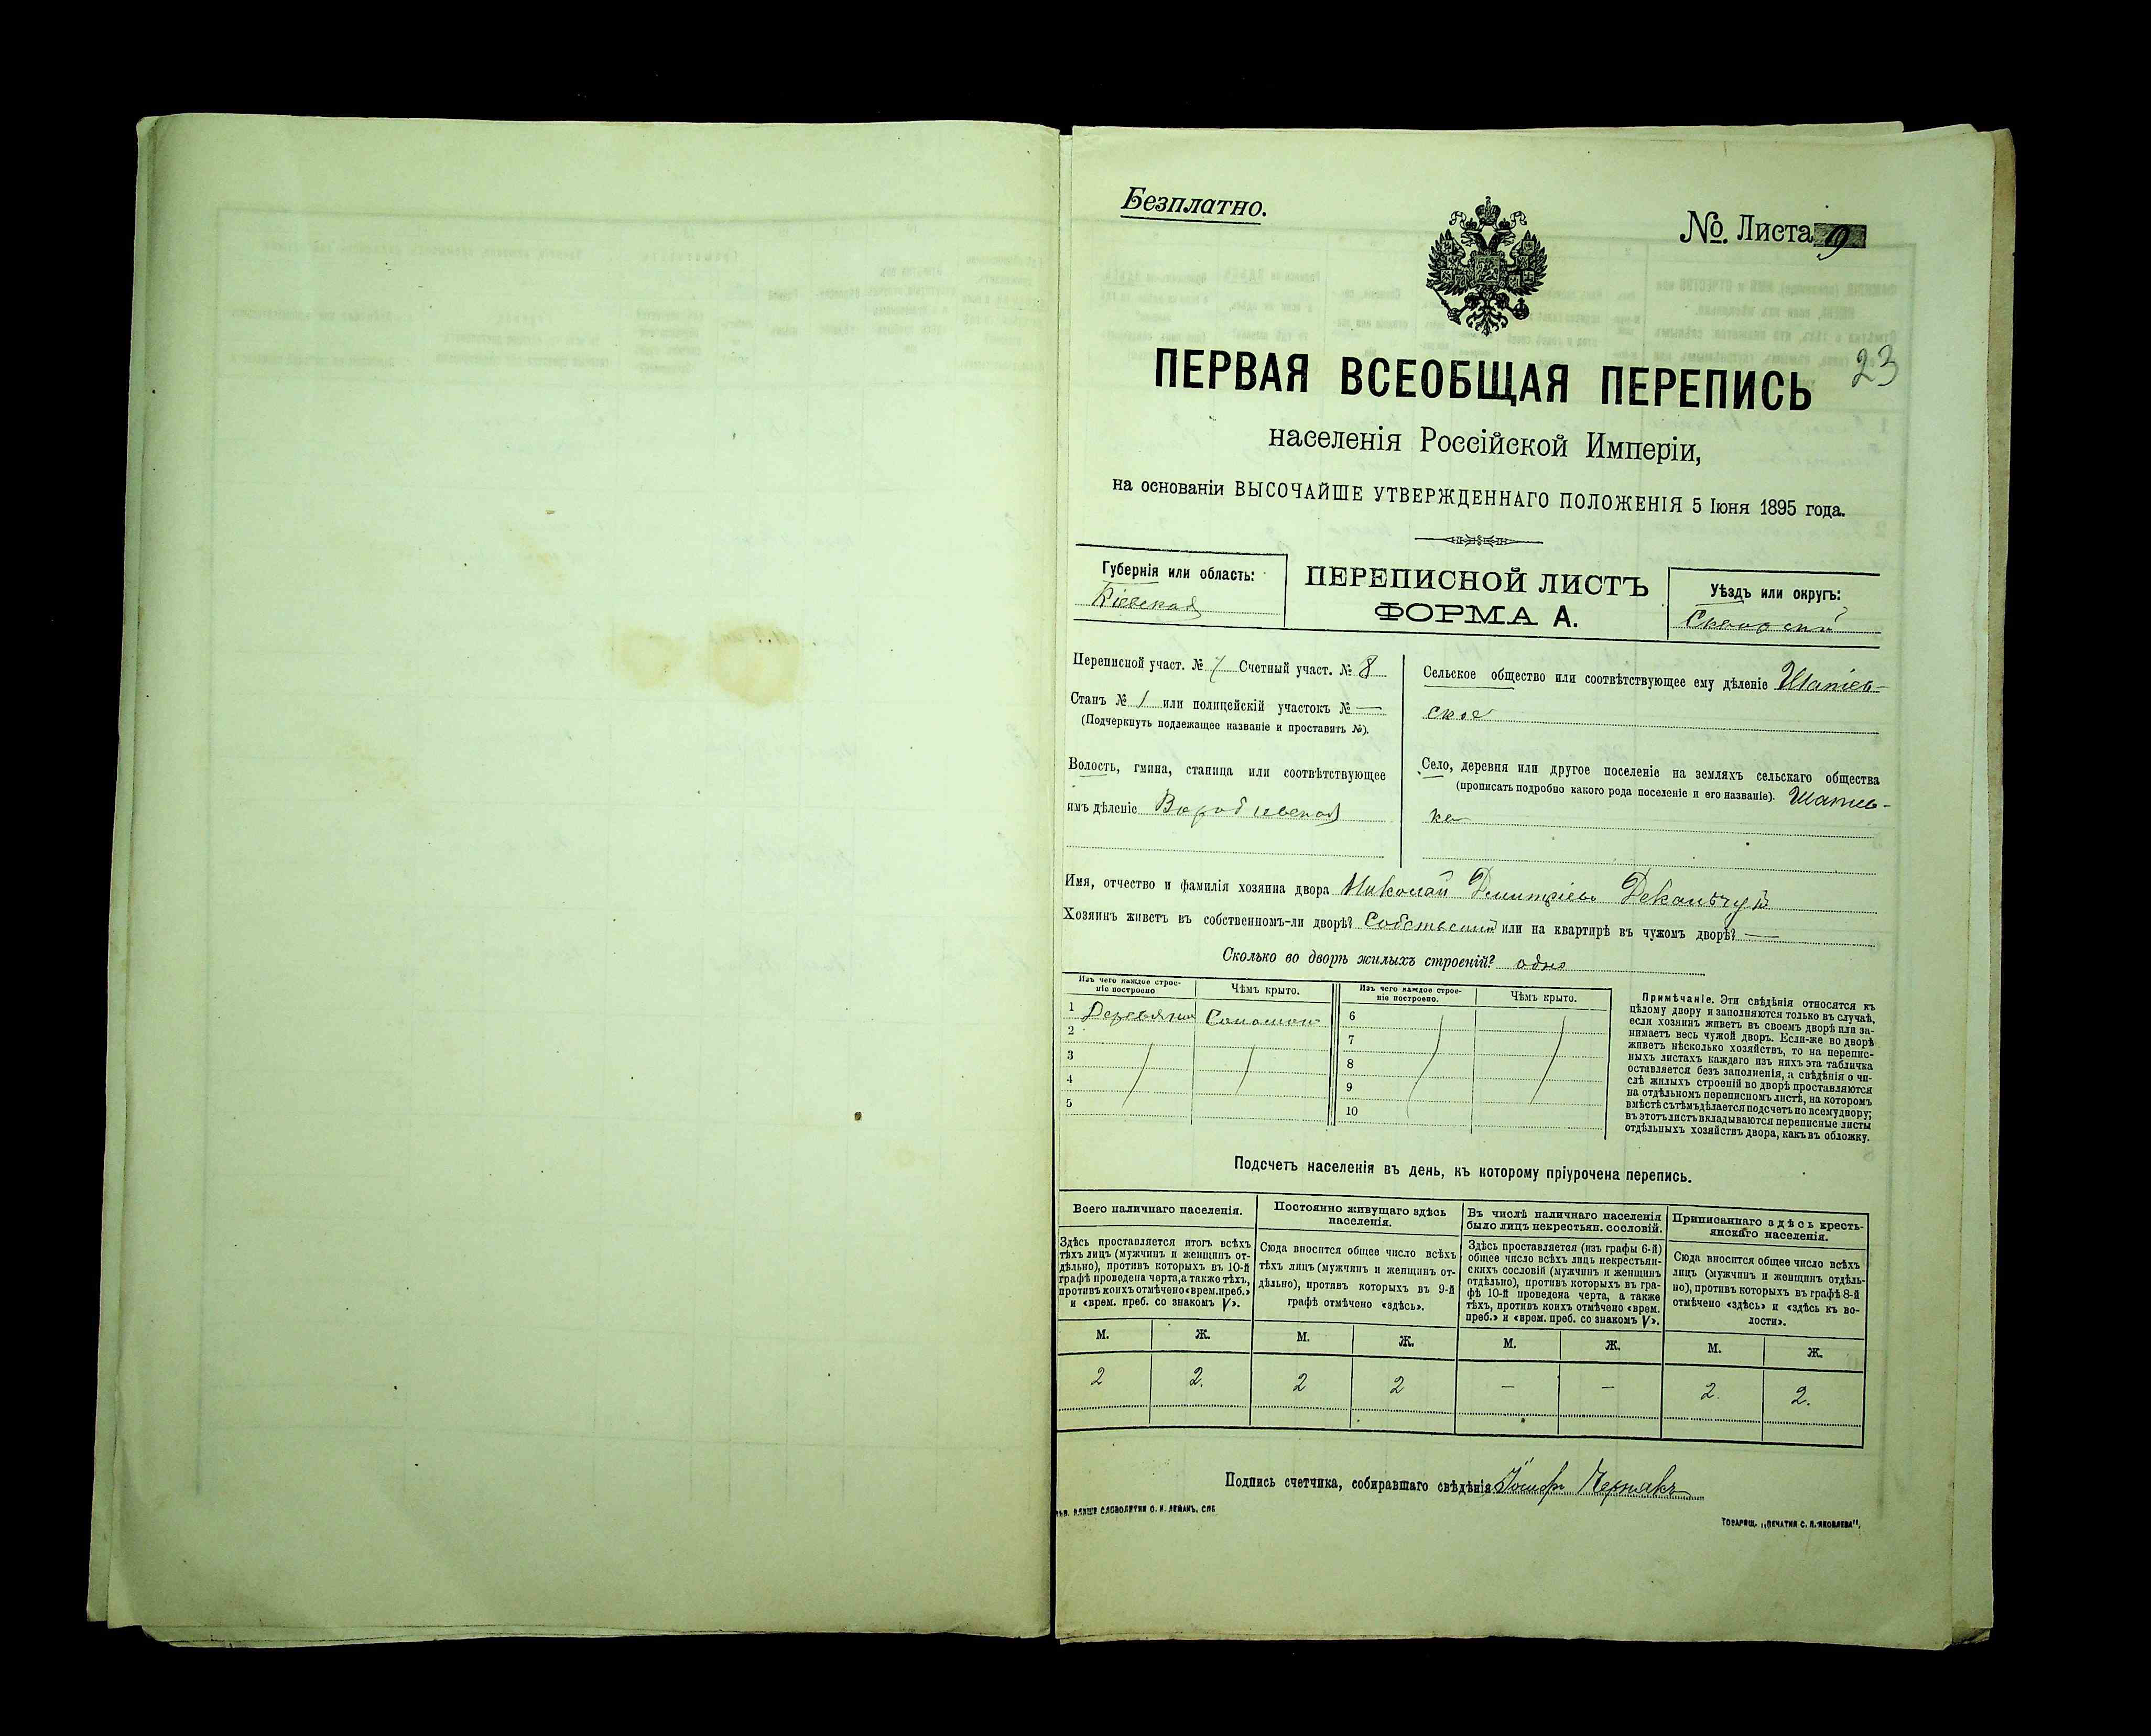 Безплатно.
№. Листа 9
23
ПЕРВАЯ ВСЕОБЩАЯ ПЕРЕПИСЬ
населенія Россійской Имперіи,
на основаніи ВЫСОЧАЙШЕ УТВЕРЖДЕННАГО ПОЛОЖЕНІЯ 5 Іюня 1895 года.
Губернія или область:
Кіевская
ПЕРЕПИСНОЙ ЛИСТЪ
ФОРМА А.
Уѣздъ или округъ:
Сквирскій
Переписной участ. № 7 Счетный участ. № 8
Станъ № 1 или полицейскій участокъ № —
(Подчеркнуть подлежащее названіе и проставить №).
Волость, гмина, станица или соотвѣтствующее
имъ дѣленіе
Сельское общество или соотвѣтствующее ему дѣленіе Шапіев-
ское
Село, деревня или другое поселеніе на земляхъ сельскаго общества
(прописать подробно какого рода поселеніе и его названіе). Шапіев-
ка
Имя, отчество и фамилія хозяина двора Николай Дмитріевъ
Хозяинъ живетъ въ собственномъ-ли дворѣ? или на квартирѣ въ чужомъ дворѣ? —
Сколько во дворѣ жилыхъ строеній? одно
Изъ чего каждое строе-
ніе построено
Чѣмъ крыто.
Изъ чего каждое строе-
ніе построено.
Чѣмъ крыто.
1
2
3
4
5
6
7
8
9
10
Примѣчаніе. Эти свѣдѣнія относятся къ
цѣлому двору и заполняются только въ случаѣ,
если хозяинъ живетъ въ своемъ дворѣ или за-
нимаетъ весь чужой дворъ. Если-же во дворѣ
живетъ нѣсколько хозяйствъ, то на перепис-
ныхъ листахъ каждаго изъ нихъ эта табличка
оставляется безъ заполненія, а свѣдѣнія о чи-
слѣ жилыхъ строеній во дворѣ проставляются
на отдѣльномъ переписномъ листѣ, на которомъ
вмѣстѣ съ тѣмъ дѣлается подсчетъ по всему двору;
въ этотъ листъ вкладываются переписные листы
отдѣльныхъ хозяйствъ двора, какъ въ обложку.
Подсчетъ населенія въ день, къ которому пріурочена перепись.
Всего наличнаго населенія.
Здѣсь проставляется итогъ всѣхъ
тѣхъ лицъ (мужчинъ и женщинъ от-
дѣльно), противъ которыхъ въ 10-й
графѣ проведена черта, а также тѣхъ,
противъ коихъ отмѣчено «врем. преб.»
и «врем. преб. со знакомъ V».
Постоянно живущаго здѣсь
населенія.
Сюда вносится общее число всѣхъ
тѣхъ лицъ (мужчинъ и женщинъ от-
дѣльно), противъ которыхъ въ 9-й
графѣ отмѣчено «здѣсь».
Въ числѣ наличнаго населенія
было лицъ некрестьян. сословій.
Здѣсь проставляется (изъ графы 6-й)
общее число всѣхъ лицъ некрестьян-
скихъ сословій (мужчинъ и женщинъ
отдѣльно), противъ которыхъ въ гра-
фѣ 10-й проведена черта, а также
тѣхъ, противъ коихъ отмѣчено «врем.
преб.» и «врем. преб. со знакомъ V».
Приписаннаго здѣсь кресть-
янскаго населенія.
Сюда вносится общее число всѣхъ
лицъ (мужчинъ и женщинъ отдѣль-
но), противъ которыхъ въ графѣ 8-й
отмѣчено «здѣсь» и «здѣсь къ во-
лости».
М. Ж. М. Ж. М. Ж. М. Ж.
2 2. 2 2 — — 2. 2.
Подпись счетчика, собиравшаго свѣдѣнія Іосифъ Чернякъ
ТОВАРИЩ. „ПЕЧАТНЯ С. П. ЯКОВЛЕВА“.